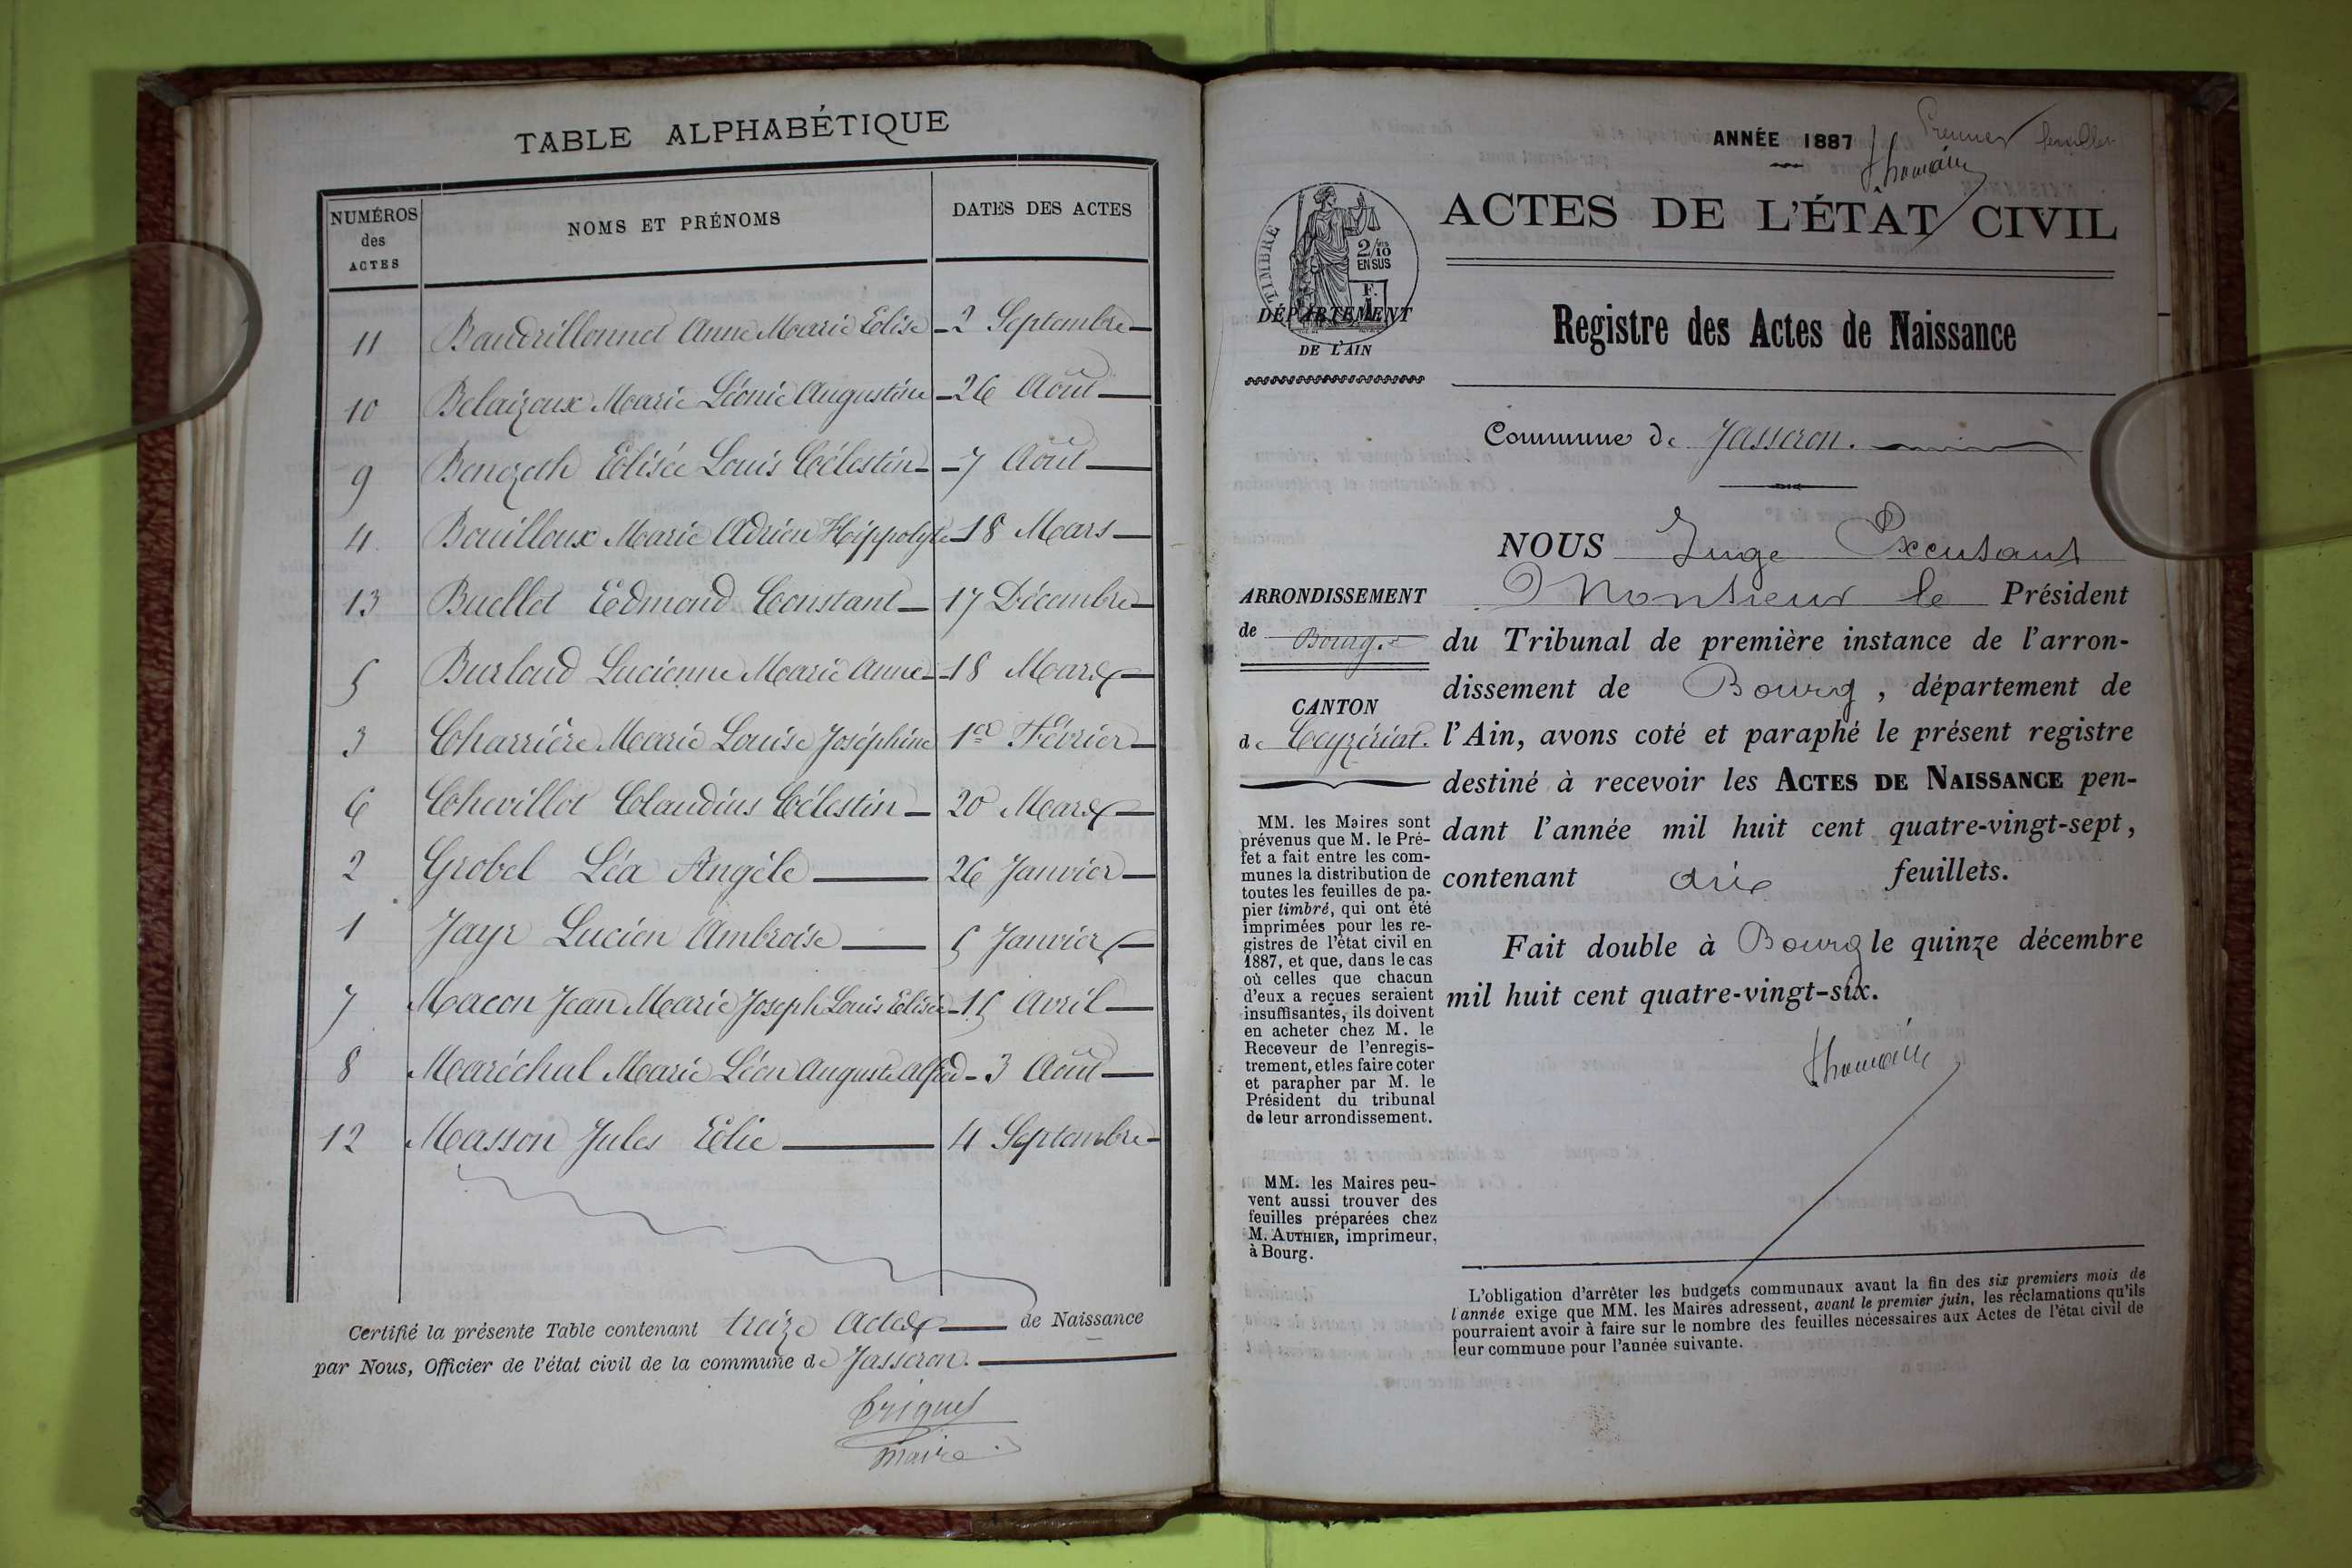 TABLE ALPHABÉTIQUE
NUMÉROS des ACTES NOMS ET PRÉNOMS DATES DES ACTES
11 Baudrillonnet Anne Marie Elise 2 Septembre
10 Belaizoux Marie Léonie Augustine 26 Août
9 Benozeth Elisée Louis Célestin 7 Août
4 Bouilloux Marie Adrien Hippolyte 18 Mars
13 Buellet Edmond Constant 17 Décembre
5 Burlaud Lucienne Marie Anne 18 Mars
3 Charrière Marie Louise Joséphine 1er Février
6 Chevillot Claudius Célestin 20 Mars
2 Grobel Léa Angèle 26 Janvier
1 Jayr Lucien Ambroise 5 Janvier
7 Macon Jean Marie Joseph Louis Elisée 15 Avril
8 Maréchal Marie Léon Auguste Alfred 3 Août
12 Masson Jules Elie 4 Septembre
Certifié la présente Table contenant treize Actes de Naissance
par Nous, Officier de l'état civil de la commune de Jasseron.
Maire
ANNÉE 1887
Premier feuillet
ACTES DE L'ÉTAT CIVIL
TIMBRE
2/10
EN SUS
F.
DÉPARTEMENT
DE L'AIN
Registre des Actes de Naissance
Commune de Jasseron.
ARRONDISSEMENT
de Bourg.
CANTON
de Ceyzériat.
MM. les Maires sont
prévenus que M. le Pré-
fet a fait entre les com-
munes la distribution de
toutes les feuilles de pa-
pier timbré, qui ont été
imprimées pour les re-
gistres de l'état civil en
1887, et que, dans le cas
où celles que chacun
d'eux a reçues seraient
insuffisantes, ils doivent
en acheter chez M. le
Receveur de l'enregis-
trement, et les faire coter
et parapher par M. le
Président du tribunal
de leur arrondissement.
MM. les Maires peu-
vent aussi trouver des
feuilles préparées chez
M. AUTHIER, imprimeur,
à Bourg.
NOUS Juge Excusant
Monsieur le Président
du Tribunal de première instance de l'arron-
dissement de Bourg, département de
l'Ain, avons coté et paraphé le présent registre
destiné à recevoir les ACTES DE NAISSANCE pen-
dant l'année mil huit cent quatre-vingt-sept,
contenant dix feuillets.
Fait double à Bourg le quinze décembre
mil huit cent quatre-vingt-six.
L'obligation d'arrêter les budgets communaux avant la fin des six premiers mois de
l'année exige que MM. les Maires adressent, avant le premier juin, les réclamations qu'ils
pourraient avoir à faire sur le nombre des feuilles nécessaires aux Actes de l'état civil de
leur commune pour l'année suivante.